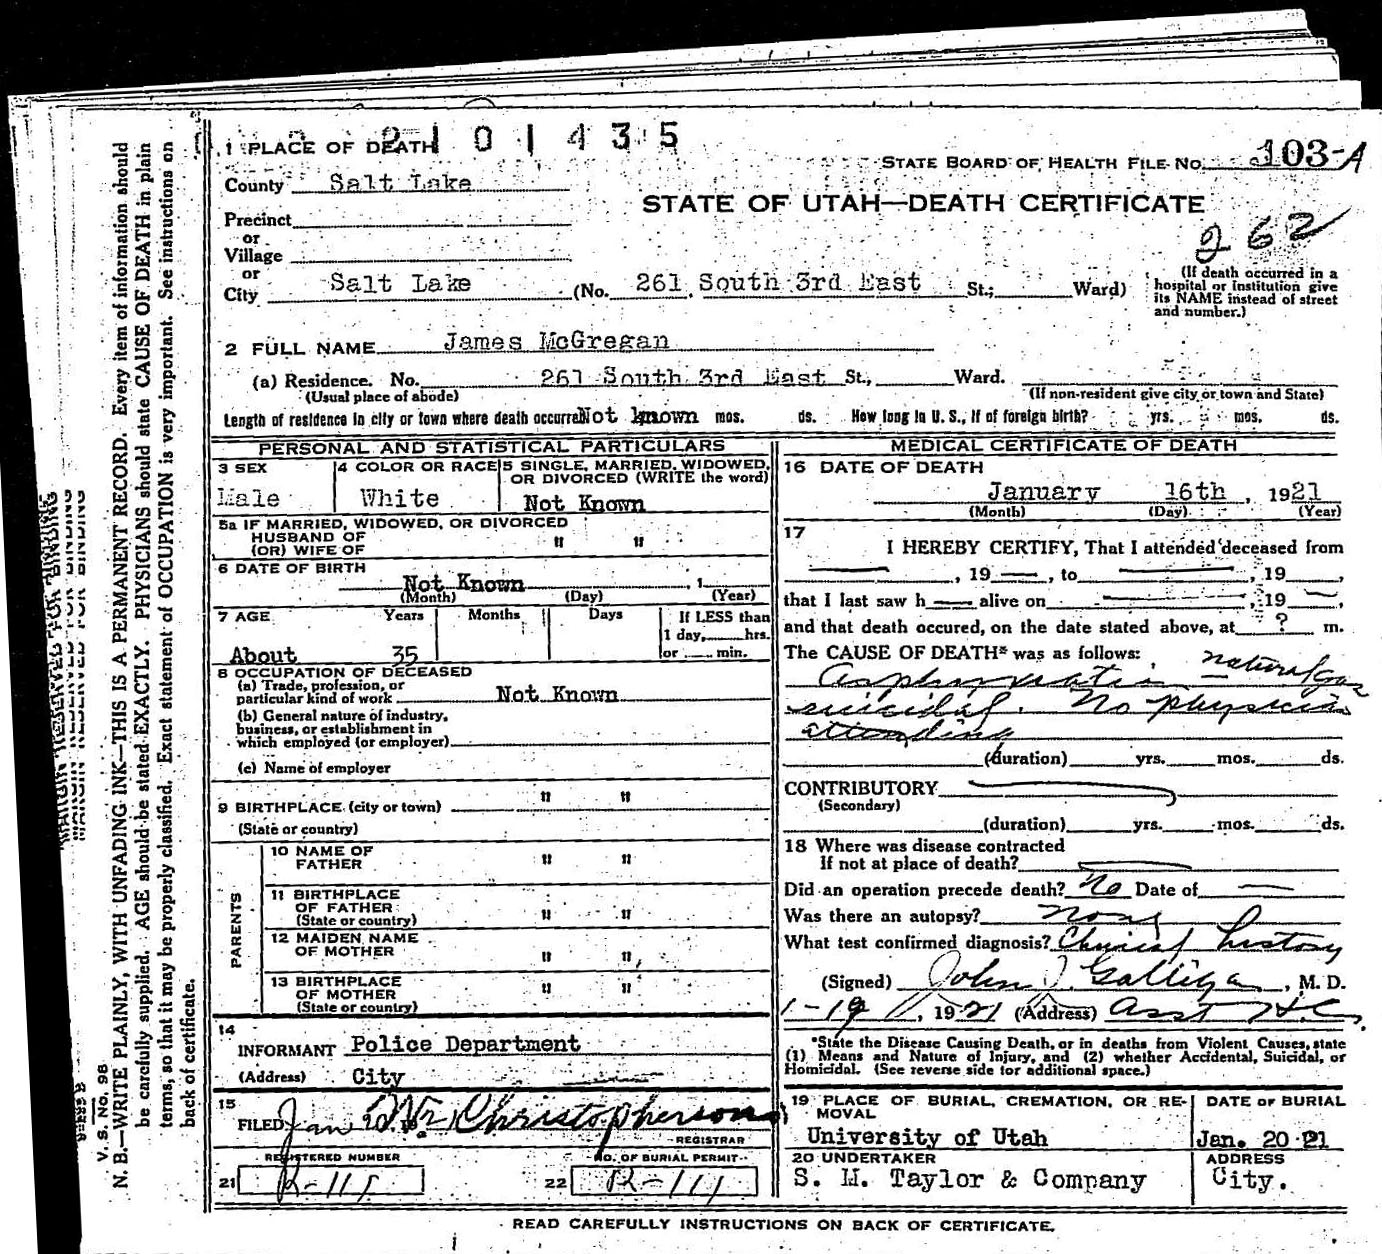 1 PLACE OF DEATH
2101435
STATE BOARD OF HEALTH FILE NO. 103-A
County Salt Lake
STATE OF UTAH—DEATH CERTIFICATE
262
Precinct
or
Village
or
City Salt Lake (No. 261 South 3rd East St.; Ward)
(If death occurred in a
hospital or institution give
its NAME instead of street
and number.)
2 FULL NAME James McGregan
(a) Residence. No. 261 South 3rd East St., Ward.
(Usual place of abode)
(If non-resident give city or town and State)
Length of residence in city or town where death occurred Not known mos. ds. How long in U. S., if of foreign birth? yrs. mos. ds.
PERSONAL AND STATISTICAL PARTICULARS
3 SEX
Male
4 COLOR OR RACE
White
5 SINGLE, MARRIED, WIDOWED,
OR DIVORCED (WRITE the word)
Not Known
5a IF MARRIED, WIDOWED, OR DIVORCED
HUSBAND OF
(OR) WIFE OF " "
6 DATE OF BIRTH
Not Known , 1
(Month) (Day) (Year)
7 AGE Years Months Days
About 35
If LESS than
1 day, hrs.
or min.
8 OCCUPATION OF DECEASED
(a) Trade, profession, or
particular kind of work Not Known
(b) General nature of industry,
business, or establishment in
which employed (or employer)
(c) Name of employer
9 BIRTHPLACE (city or town) " "
(State or country)
PARENTS
10 NAME OF
FATHER " "
11 BIRTHPLACE
OF FATHER
(State or country) " "
12 MAIDEN NAME
OF MOTHER " "
13 BIRTHPLACE
OF MOTHER " "
(State or country)
14
INFORMANT Police Department
(Address) City
15
FILED Jan 20 Christopherson
REGISTRAR
REGISTERED NUMBER
21 R-111
NO. OF BURIAL PERMIT
22 R-111
MEDICAL CERTIFICATE OF DEATH
16 DATE OF DEATH
January 16th, 1921
(Month) (Day) (Year)
17
I HEREBY CERTIFY, That I attended deceased from
, 19 , to , 19 ,
that I last saw h alive on , 19 ,
and that death occured, on the date stated above, at ? m.
The CAUSE OF DEATH* was as follows:
Asphyxiation natural gas
suicidal. No physician
attending
(duration) yrs. mos. ds.
CONTRIBUTORY
(Secondary)
(duration) yrs. mos. ds.
18 Where was disease contracted
If not at place of death?
Did an operation precede death? No Date of
Was there an autopsy? None
What test confirmed diagnosis? Clinical history
(Signed) John J. Galligan, M. D.
1-19, 1921 (Address) Asst H.C.
*State the Disease Causing Death, or in deaths from Violent Causes, state
(1) Means and Nature of Injury, and (2) whether Accidental, Suicidal, or
Homicidal. (See reverse side for additional space.)
19 PLACE OF BURIAL, CREMATION, OR RE-
MOVAL
University of Utah
DATE OF BURIAL
Jan. 20 21
20 UNDERTAKER
S. M. Taylor & Company
ADDRESS
City.
READ CAREFULLY INSTRUCTIONS ON BACK OF CERTIFICATE.
MARGIN RESERVED FOR BINDING
V. S. No. 98
N. B.—WRITE PLAINLY, WITH UNFADING INK—THIS IS A PERMANENT RECORD. Every item of information should
be carefully supplied. AGE should be stated EXACTLY. PHYSICIANS should state CAUSE OF DEATH in plain
terms, so that it may be properly classified. Exact statement of OCCUPATION is very important. See instructions on
back of certificate.